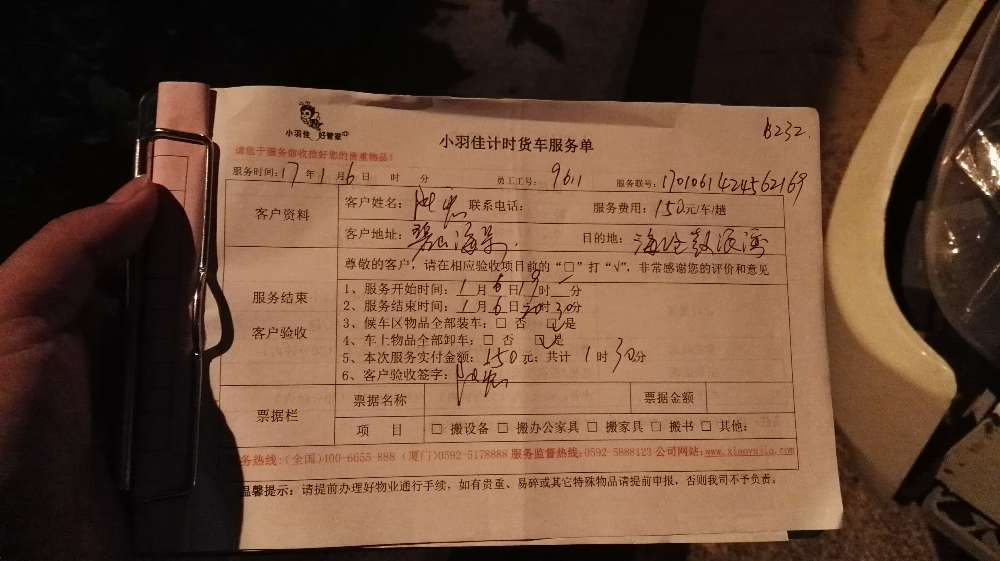 小羽佳 好管家
小羽佳计时货车服务单
B232.
请您于服务前收拾好您的贵重物品!
服务时间: 17 年 1 月 6 日 时 分 员工工号: 9611 服务联号: 1701061424562169
客户资料
客户姓名: 联系电话: 服务费用: 150 元/车/趟
客户地址: 碧山海景. 目的地: 海沧
尊敬的客户, 请在相应验收项目前的“□”打“√”, 非常感谢您的评价和意见
服务结束
客户验收
1、服务开始时间: 1 月 6 日 19 时 分
2、服务结束时间: 1 月 6 日 20 时 30 分
3、候车区物品全部装车: □ 否 □ 是
4、车上物品全部卸车: □ 否 □ 是
5、本次服务实付金额: 150 元; 共计 1 时 30 分
6、客户验收签字:
票据栏
票据名称 票据金额
项 目 □ 搬设备 □ 搬办公家具 □ 搬家具 □ 搬书 □ 其他:
务热线: (全国)400-6655-888 (厦门)0592-5178888 服务监督热线:0592-5888123 公司网站: www.xiaoyujia.com
温馨提示: 请提前办理好物业通行手续, 如有贵重、易碎或其它特殊物品请提前申报, 否则我司不予负责。